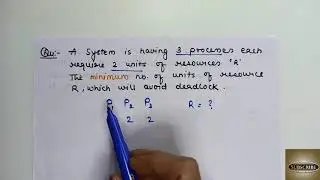 Que:- A System is having 3 process each
require 2 units of resources 'R'
The minimum no. of units of resource
R, which will avoid deadlock.
P1 P2 P3 R = ?
2 2
SUBSCRIBE